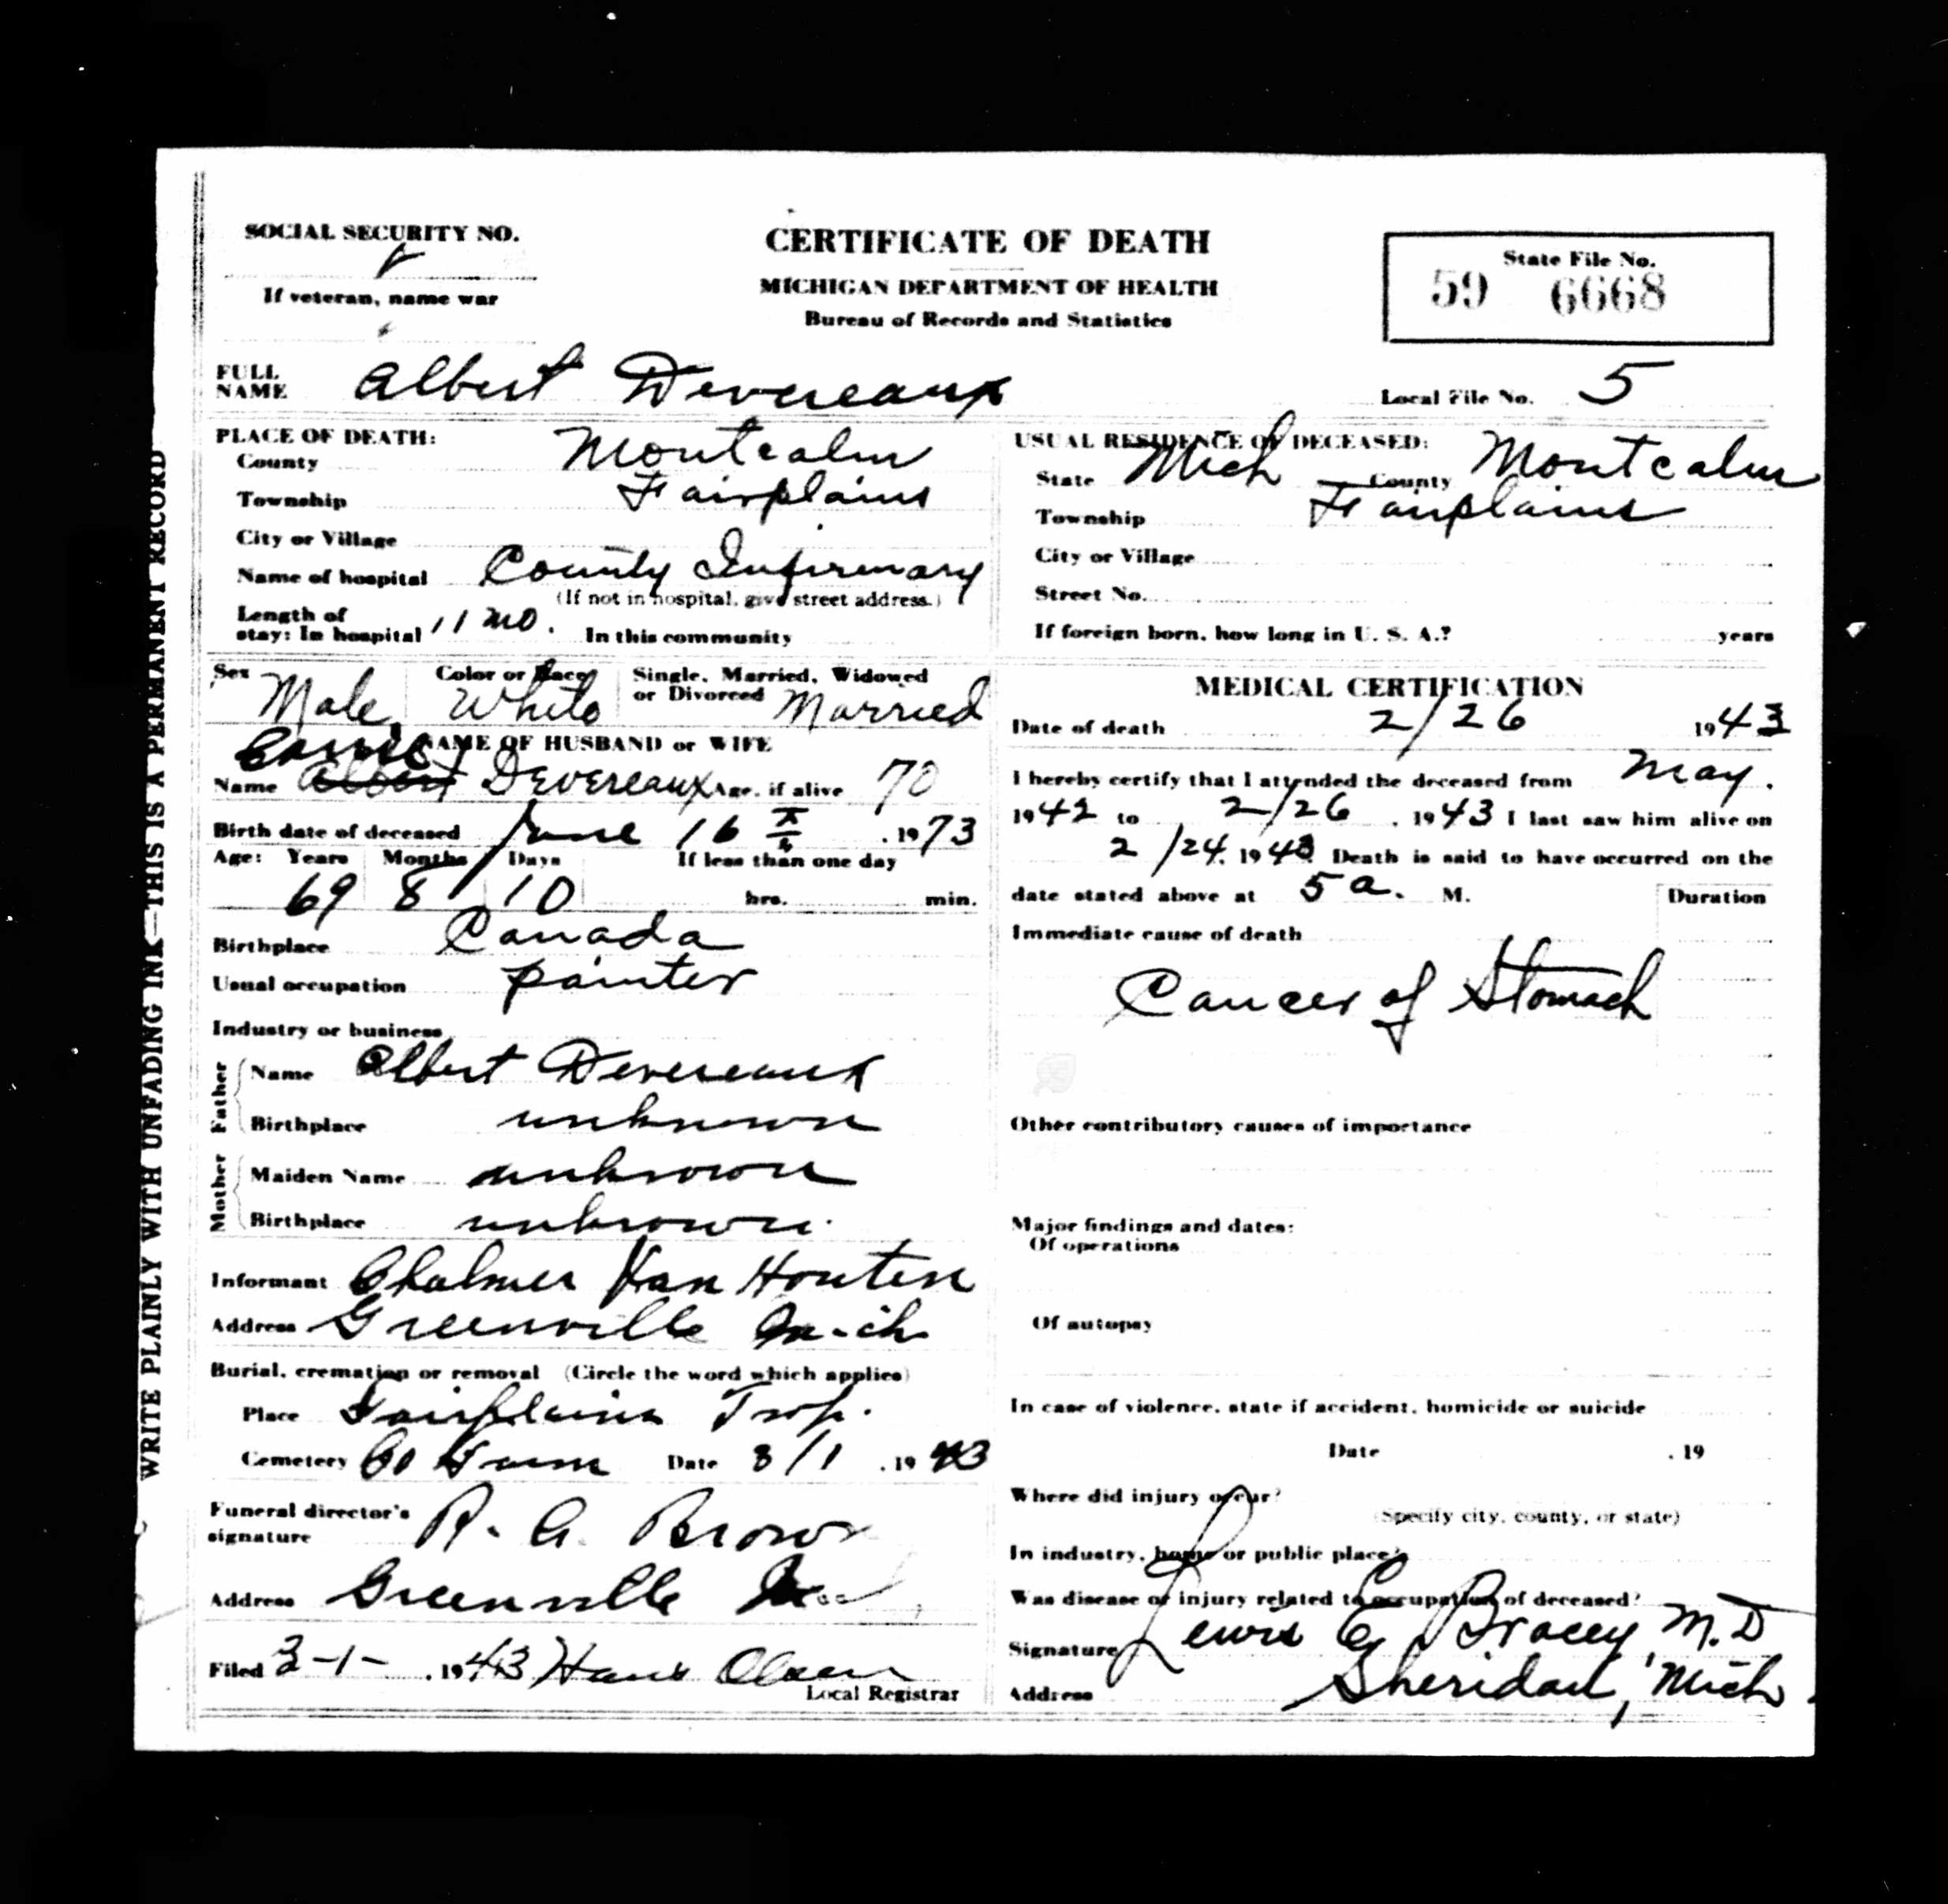 WRITE PLAINLY WITH UNFADING INK—THIS IS A PERMANENT RECORD
SOCIAL SECURITY NO.
If veteran, name war
CERTIFICATE OF DEATH
MICHIGAN DEPARTMENT OF HEALTH
Bureau of Records and Statistics
State File No.
59 6668
FULL NAME Albert Devereaux
Local File No. 5
PLACE OF DEATH:
County Montcalm
Township Fairplains
City or Village
Name of hospital County Infirmary
(If not in hospital, give street address.)
Length of stay: In hospital 11 mo. In this community
USUAL RESIDENCE OF DECEASED:
State Mich County Montcalm
Township Fairplains
City or Village
Street No.
If foreign born, how long in U. S. A.? years
Sex Male Color or Race White Single, Married, Widowed or Divorced Married
NAME OF HUSBAND or WIFE
Carrie
Name Albert Devereaux Age, if alive 70
Birth date of deceased June 16 , 1973
Age: Years Months Days If less than one day
69 8 10 hrs. min.
Birthplace Canada
Usual occupation painter
Industry or business
Father
Name Albert Devereaux
Birthplace unknown
Mother
Maiden Name unknown
Birthplace unknown.
Informant Chalmer Van Houten
Address Greenville Mich
Burial, cremation or removal (Circle the word which applies)
Place Fairplains Twp.
Cemetery Co Farm Date 3/1 , 1943
Funeral director's signature R. A. Brown
Address Greenville
Filed 3-1- , 1943 Hans Olsen
Local Registrar
MEDICAL CERTIFICATION
Date of death 2/26 1943
I hereby certify that I attended the deceased from May.
1942 to 2/26 , 1943 I last saw him alive on
2/24, 1943 Death is said to have occurred on the
date stated above at 5 a. M. Duration
Immediate cause of death
Cancer of Stomach
Other contributory causes of importance
Major findings and dates:
Of operations
Of autopsy
In case of violence, state if accident, homicide or suicide
Date , 19
Where did injury occur?
(Specify city, county, or state)
In industry, home or public place?
Was disease or injury related to occupation of deceased?
Signature Lewis E Bracey M.D
Address Sheridan, Mich.